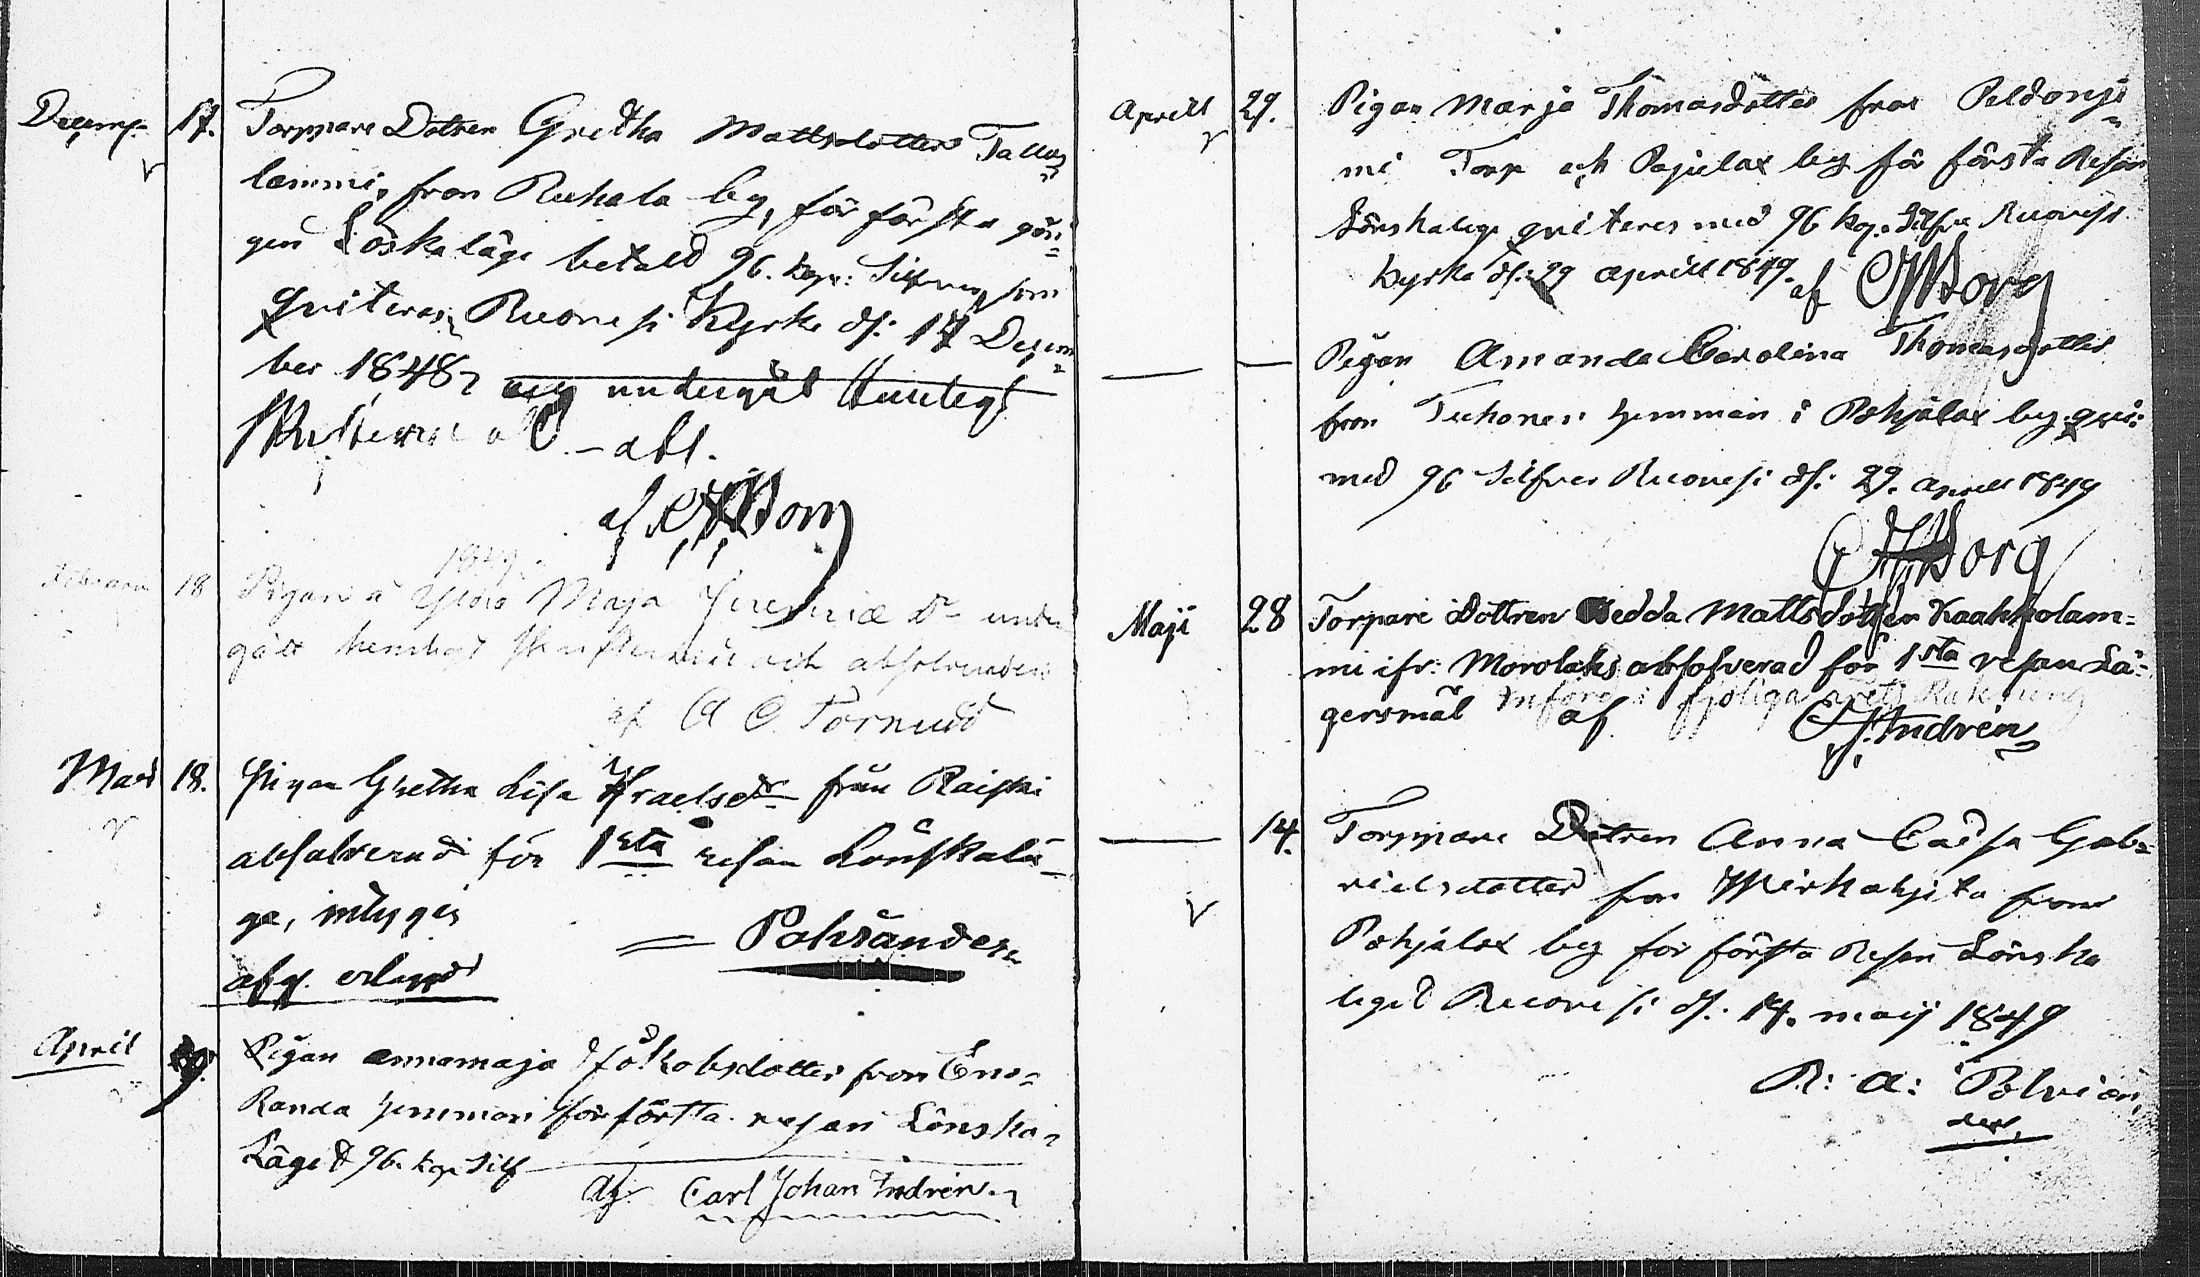 Decemb. 17. Torppare Dotren Gretha Mattsdotter Tallus
lammi, fron Ruhala by, för första gån
gen Löskaläge betald 96. kop: Silfver, som
qviteras, Ruovesi Kyrka d: 17 Decem
ber 1848,
abs.
af Borg
1849
Februari 18 Pigan Maja dr under
gått hemligt skriftermål och absolverades
af A O Törnudd
Mars 18. Pigan Gretha Lisa Israelsdr från Raiski
absolverad för 1sta resan Lönskalä
ge, intygis
Polviander
afg. erlagd
April 29. Pigan annamaja Jakobsdotter from Eno
Randa hemman för första resan Lönska
Läget 96. kop Silf
af Carl Johan Indrén
Aprill 29. Pigan Marja Thomasdotter fron Peldonje
mi Torp och Pajulax by för första Resan
Lönskalege qviteres med 96 kop. Silfre Ruovesi
Kyrka d: 29 aprill 1849. af Borg
— — Pigan Amanda Carolina Thomasdotter
fron Tuhones hemman i Pohjalax by. qvi:
med 96 Silfver Ruovesi d: 29. aprill 1849
Borg
Maji 28 Torpare Dottren Hedda Mattsdotter Kaakkolam=
mi ifr: Morolaks absolverad för 1sta resan Lä=
gersmål införs i följige arets Räkning
af Indrén
— 14. Torppare Dotren Anna Caisa Gab=
rielsdotter fron from
Pohjalax by för första Resan Lönska
leget Ruovesi d. 14. maij 1849
R: A: Polvian
der,